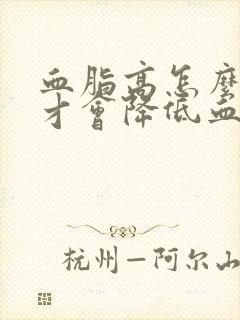 血脂高怎麼
才會降低血
杭州—阿尔山